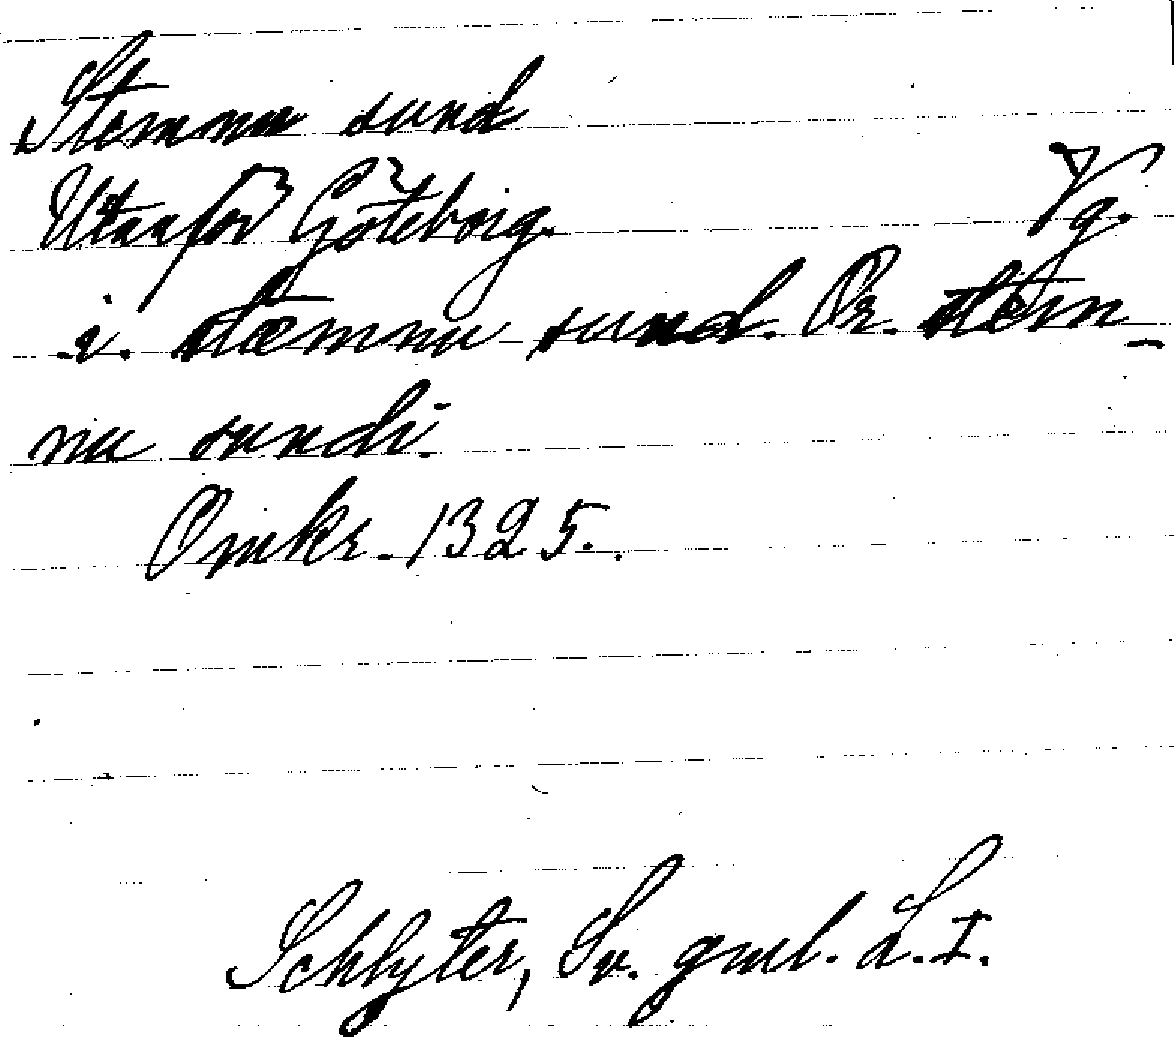 Stemnu sund
Utanför Göteborg. Vg.
i. stæmnu sund. Pr. stem-
nu sundi.
Omkr. 1325.
Schlyter, Sv. gml. L. I.